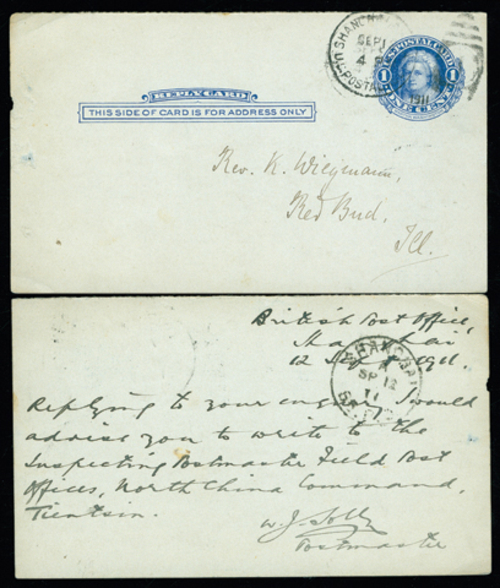 SHANGHAI
SEP 1
1911
U.S. POSTAL
U.S. POSTAL CARD
1 1
ONE CENT
REPLY CARD
THIS SIDE OF CARD IS FOR ADDRESS ONLY
Rev. K. Wiegmann,
Red Bud,
Ill.
British Post Office,
Shanghai
12 Sept 1911.
SHANGHAI
A
SP 12
11
Replying to your enquiry I would
advise you to write to the
Inspecting Postmaster Field Post
Offices, North China Command,
Tientsin.
Postmaster